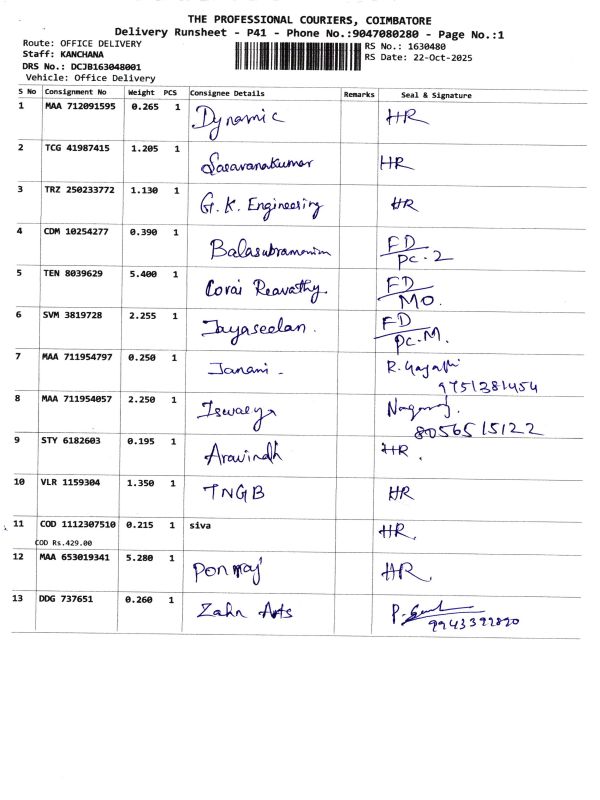 THE PROFESSIONAL COURIERS, COIMBATORE
Delivery Runsheet - P41 - Phone No.:9047080280 - Page No.:1
Route: OFFICE DELIVERY RS No.: 1630480
Staff: KANCHANA RS Date: 22-Oct-2025
DRS No.: DCJB163048001
Vehicle: Office Delivery
S No Consignment No Weight PCS Consignee Details Remarks Seal & Signature
1 MAA 712091595 0.265 1 Dynamic HR
2 TCG 41987415 1.205 1 Saravanakumar HR
3 TRZ 250233772 1.130 1 G.K. Engineering HR
4 CDM 10254277 0.390 1 Balasubramanim FD
PC-2
5 TEN 8039629 5.400 1 Corai Reavathy FD
MO.
6 SVM 3819728 2.255 1 Jayaseelan. FD
PC.M.
7 MAA 711954797 0.250 1 Janani - R. Gayathi
9751381454
8 MAA 711954057 2.250 1 Iswarya Nagaraj.
8056515122
9 STY 6182603 0.195 1 Aravindh HR.
10 VLR 1159304 1.350 1 TNGB HR
11 COD 1112307510 0.215 1 siva HR.
COD Rs.429.00
12 MAA 653019341 5.280 1 Ponraj HR.
13 DDG 737651 0.260 1 Zahn Arts P.
9943399820